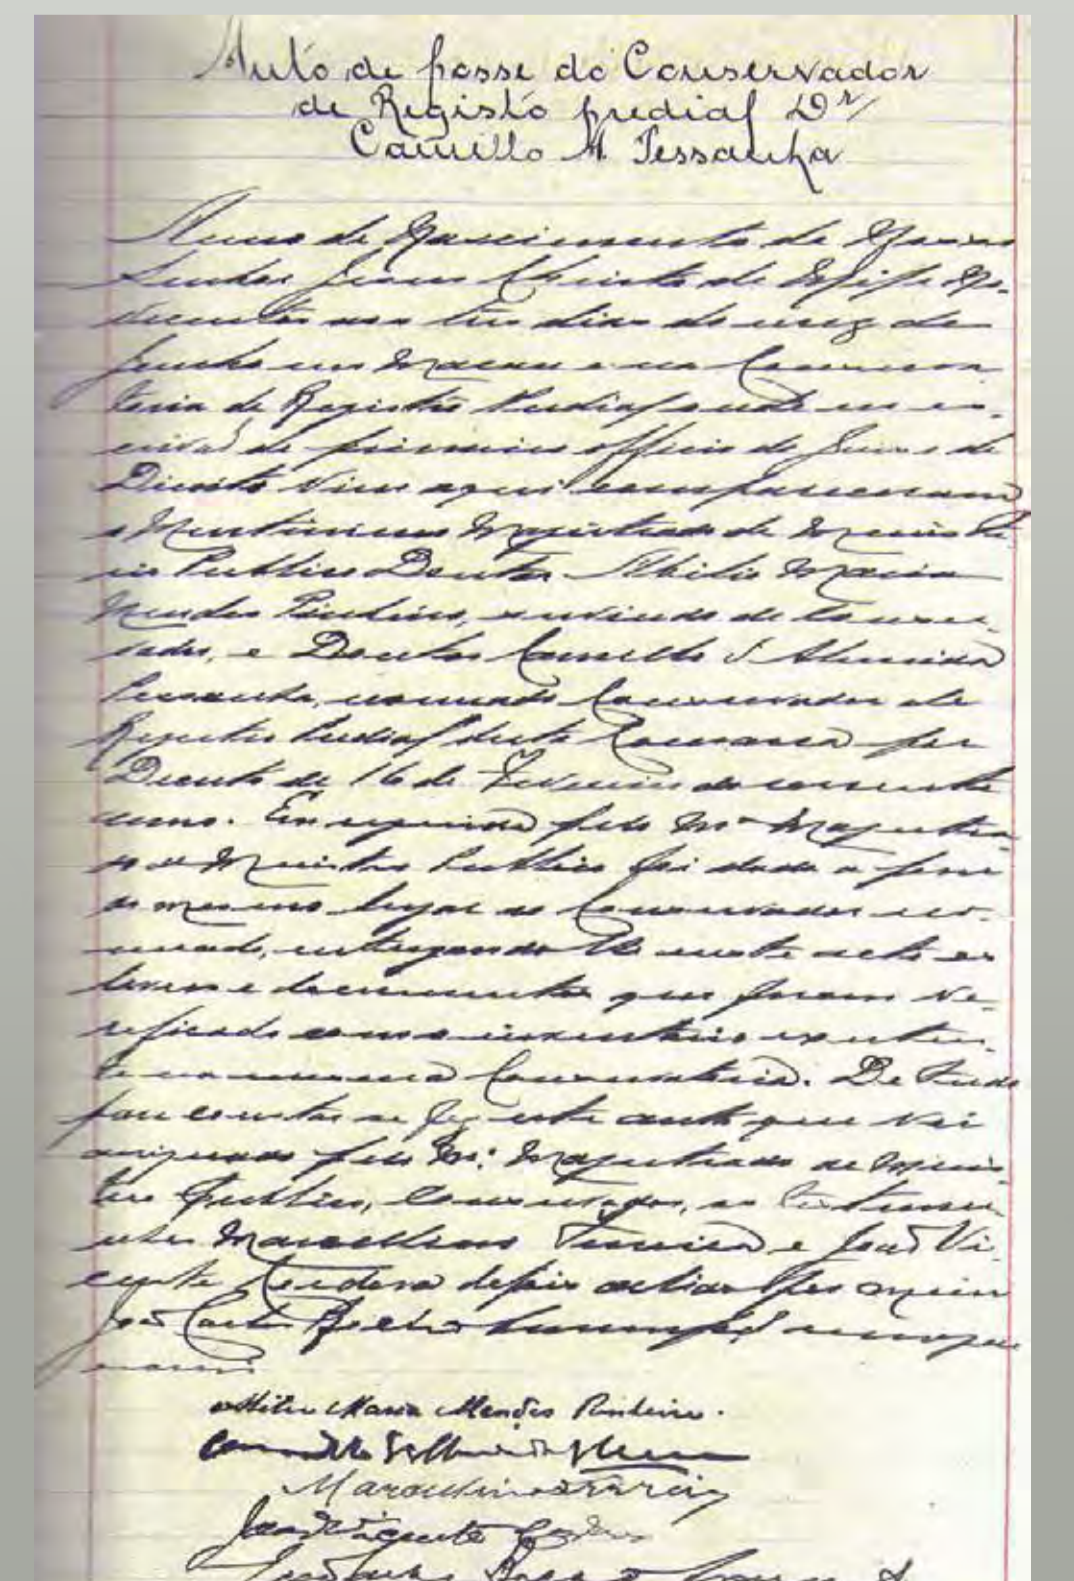 Auto de posse do Conservador
de Registo predial Dr
Camillo A. Pessanha
Anno do Nascimento de Nosso
Senhor Jesus Christo de Mil e No-
vecentos aos tres dias do mez de
Junho em Macau e na Conserva
toria de Registro Predial onde eu es-
crivão do primeiro officio do Juizo de
Direito vim aqui compareceram
o Meritissimo Magistrado do Minis te-
rio Publico Doutor Abilio Maria
Mendes Pinheiro, servindo de Conser-
vador, e Doutor Camillo d'Almeida
Pessanha, nomeado Conservador do
Registro Predial desta Comarca por
Decreto de 16 de Fevereiro do corrente
anno. Em seguida pelo Mmo Magistra-
do do Ministerio Publico foi dada a posse
do mesmo lugar ao Conservador no-
meado, entregando lhe neste acto os
livros e documentos que foram ve-
rificados com o inventario existen-
te na mesma Conservatoria. De tudo
para constar se fez este auto que vai
assignado pelo Mmo Magistrado do Minis
terio Publico, Conservador, as testemu-
nhas Marcellino e João Vi-
cente depois de lido por mim
João Carlos
Abilio Maria Mendes Pinheiro.
Camillo d'Almeida Pessanha
João Vicente